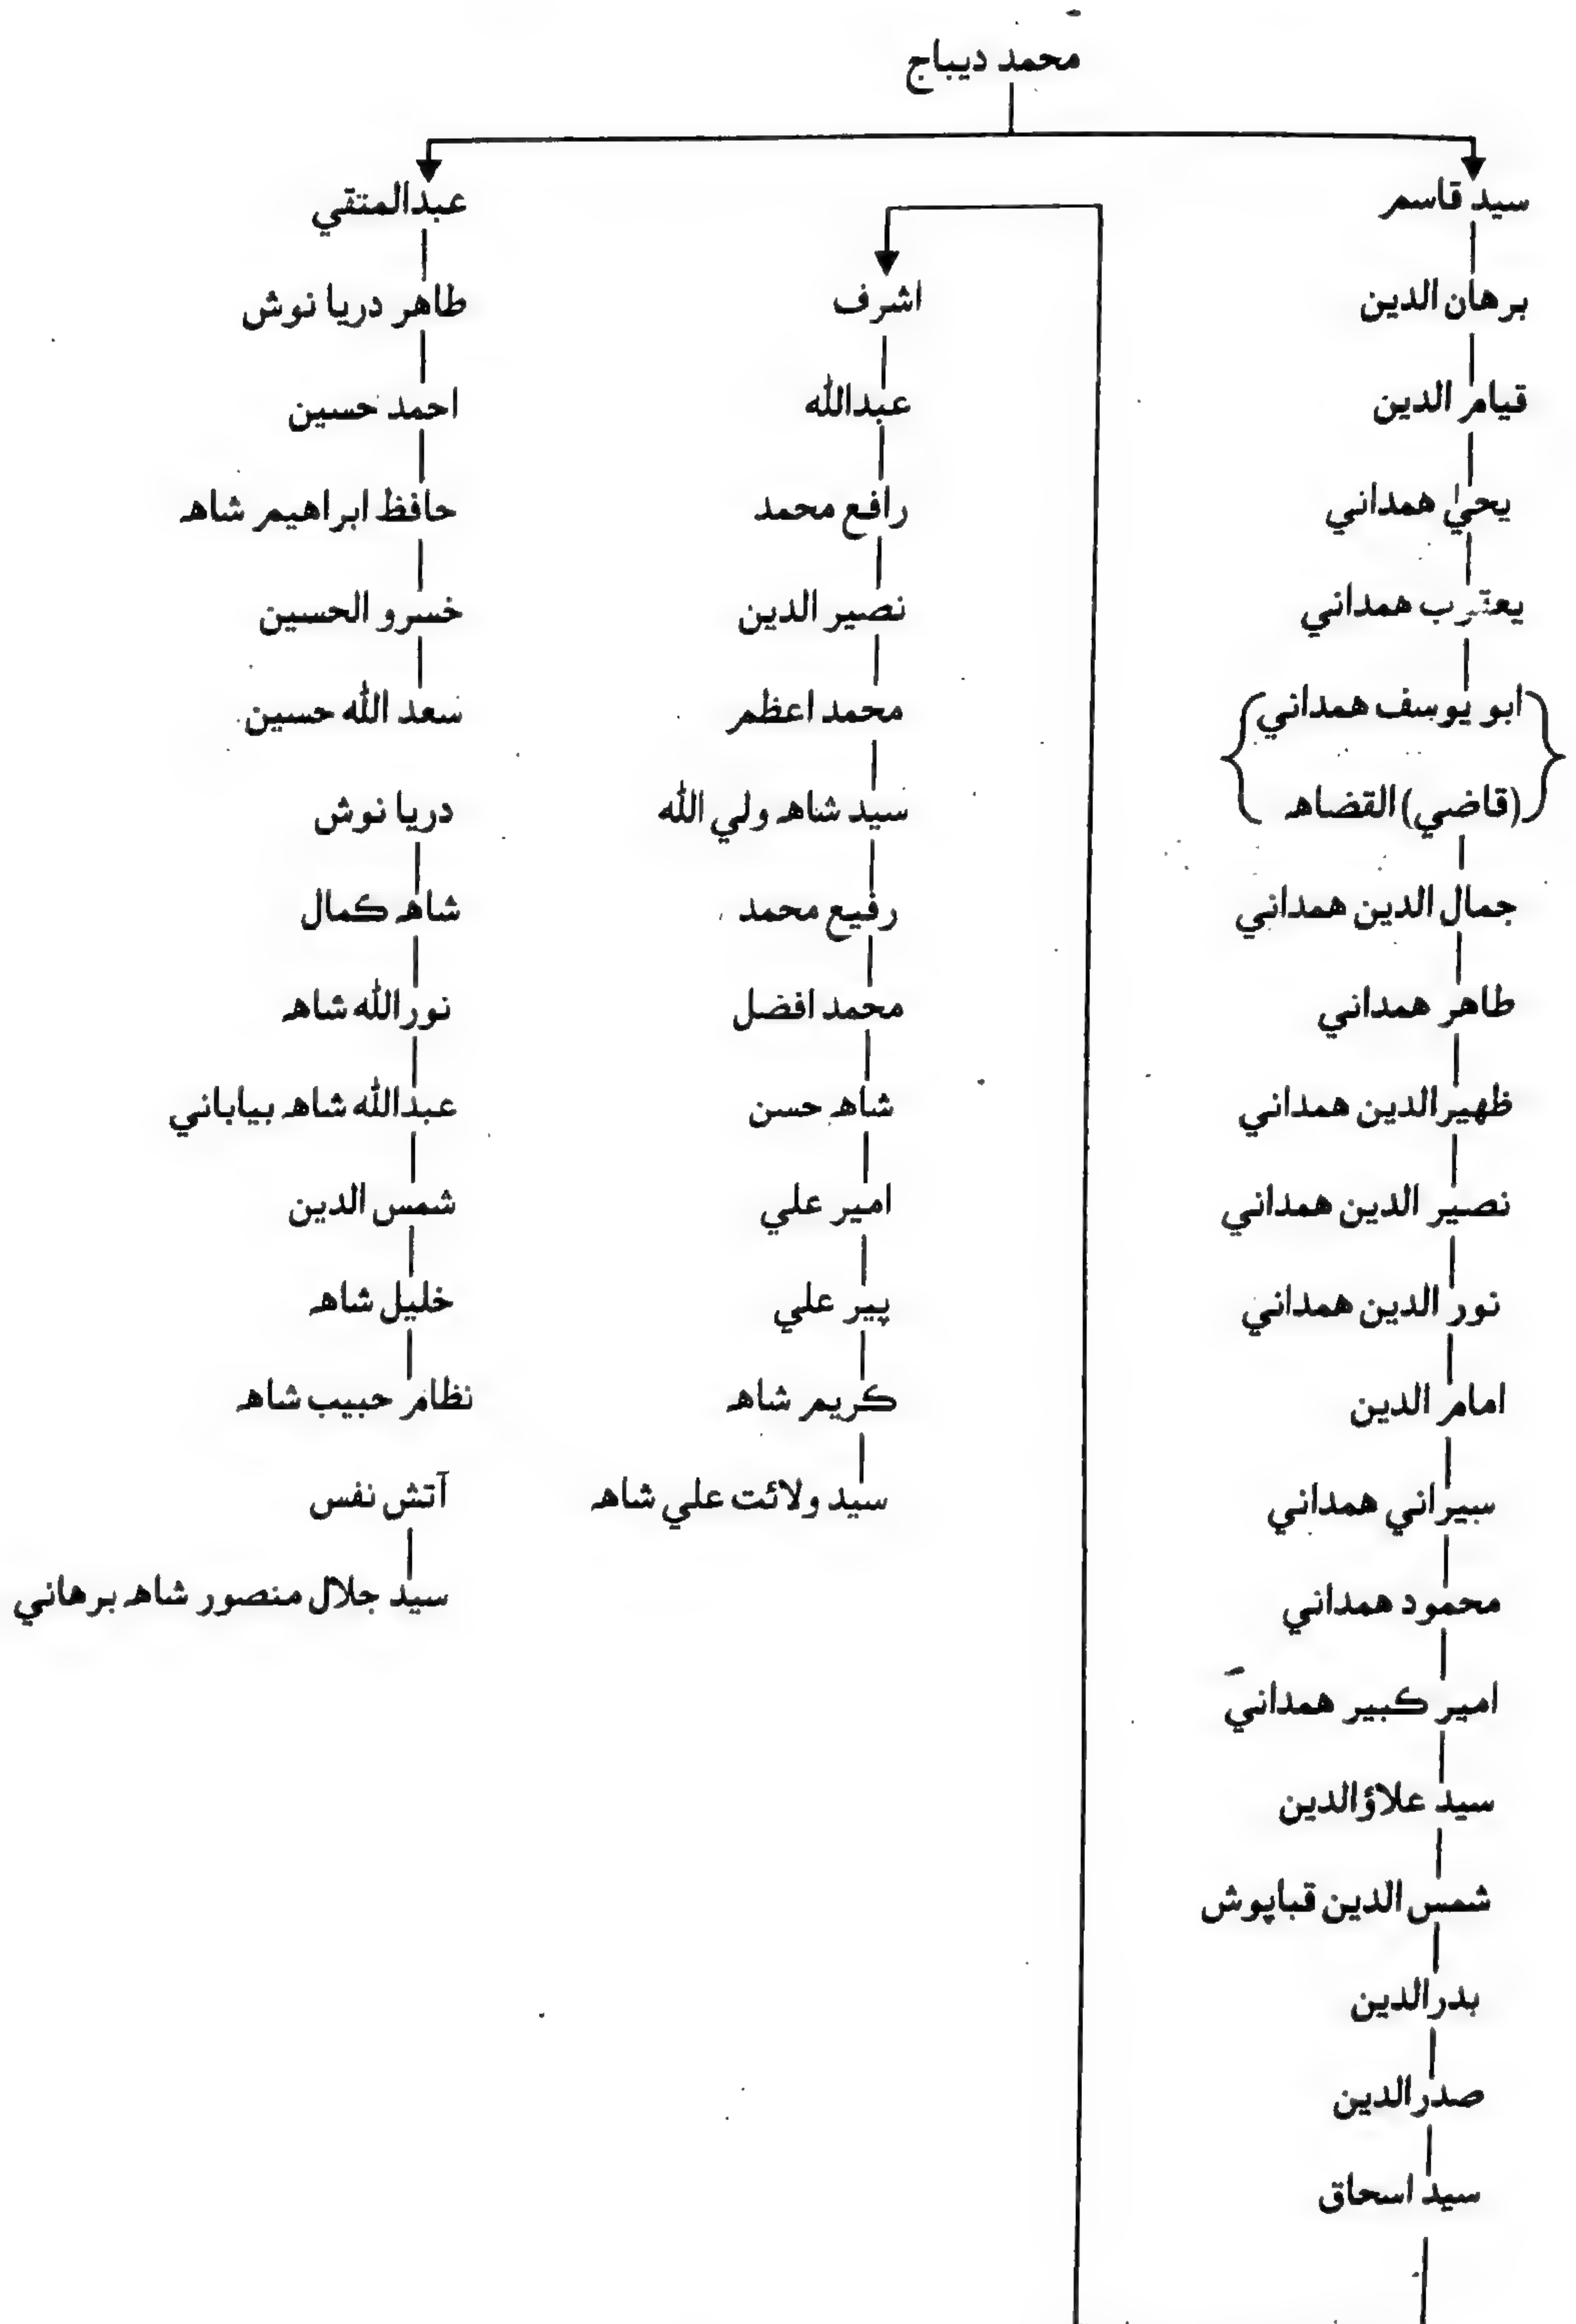 محمد ديباج
سيد قاسم
برهان الدين
قيام الدين
يحيٰ همداني
همداني
ابو يوسف همداني
(قاضي) القضاھ
جمال الدين همداني
طاهر همداني
ظهيرالدين همداني
نصير الدين همداني
نور الدين همداني
امام الدين
سبيراني همداني
محمود همداني
امير ڪبير همدانيؒ
سيد علاؤالدين
شمس الدين قباپوش
بدرالدين
صدرالدين
سيد اسحاق
اشرف
عبدالله
رافع محمد
نصير الدين
محمد اعظم
سيد شاھ ولي الله
رفيع محمد
محمد افضل
شاھ حسن
امير علي
پير علي
ڪريم شاھ
سيد ولائت علي شاھ
عبدالمتقي
طاهر دريا نوش
احمد حسين
حافظ ابراهيم شاھ
خسرو الحسين
سعد الله حسين
دريا نوش
شاھ ڪمال
نورالله شاھ
عبدالله شاھ بياباني
شمس الدين
خليل شاھ
نظام حبيب شاھ
آتش نفس
سيد جلال منصور شاھ برهاني